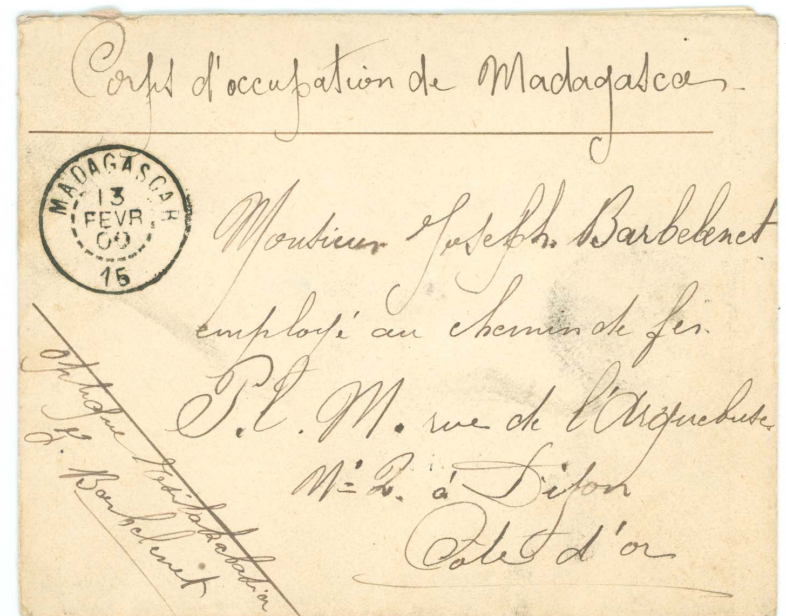 Corps d'occupation de Madagascar
MADAGASCAR
13
FEVR
00
15
Monsieur Joseph Barbelenet
employé au chemin de fer
P. L. M. rue de l'Arquebuse
N° 2. à Dijon
Côte d'or
optique
J. Barbelenet